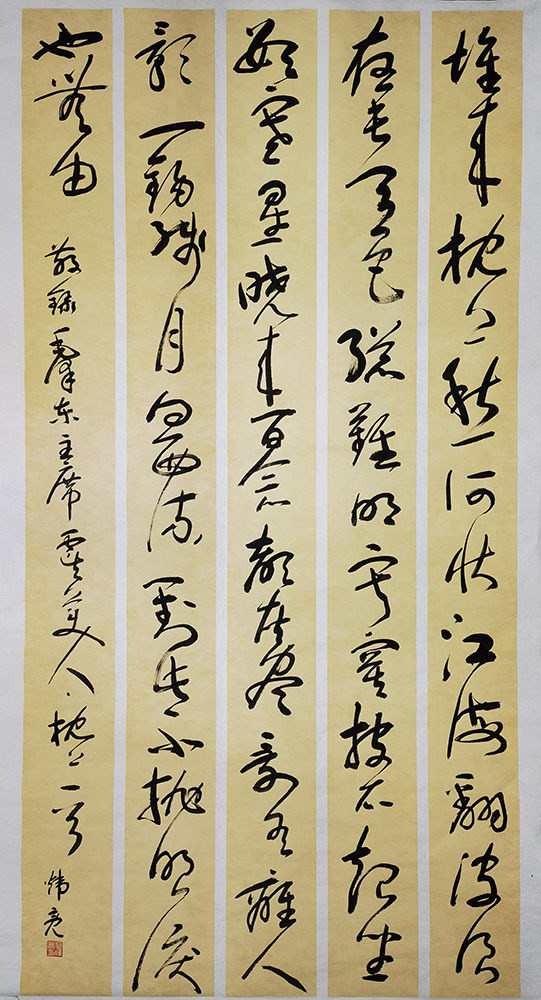 堆来枕上愁何状江海翻波浪
夜长天色總難明寂寞披衣起坐
數寒星晓来百念都灰烬剩有離人
影一鈎残月向西流對此不抛眼淚
也無由
敬録毛澤东主席虞美人·枕上一首
炜亮